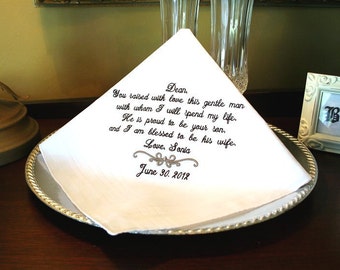 Dear,
You raised with love this gentle man
with whom I will spend my life.
He is proud to be your son,
and I am blessed to be his wife.
Love, Sonia
June 30, 2012
B